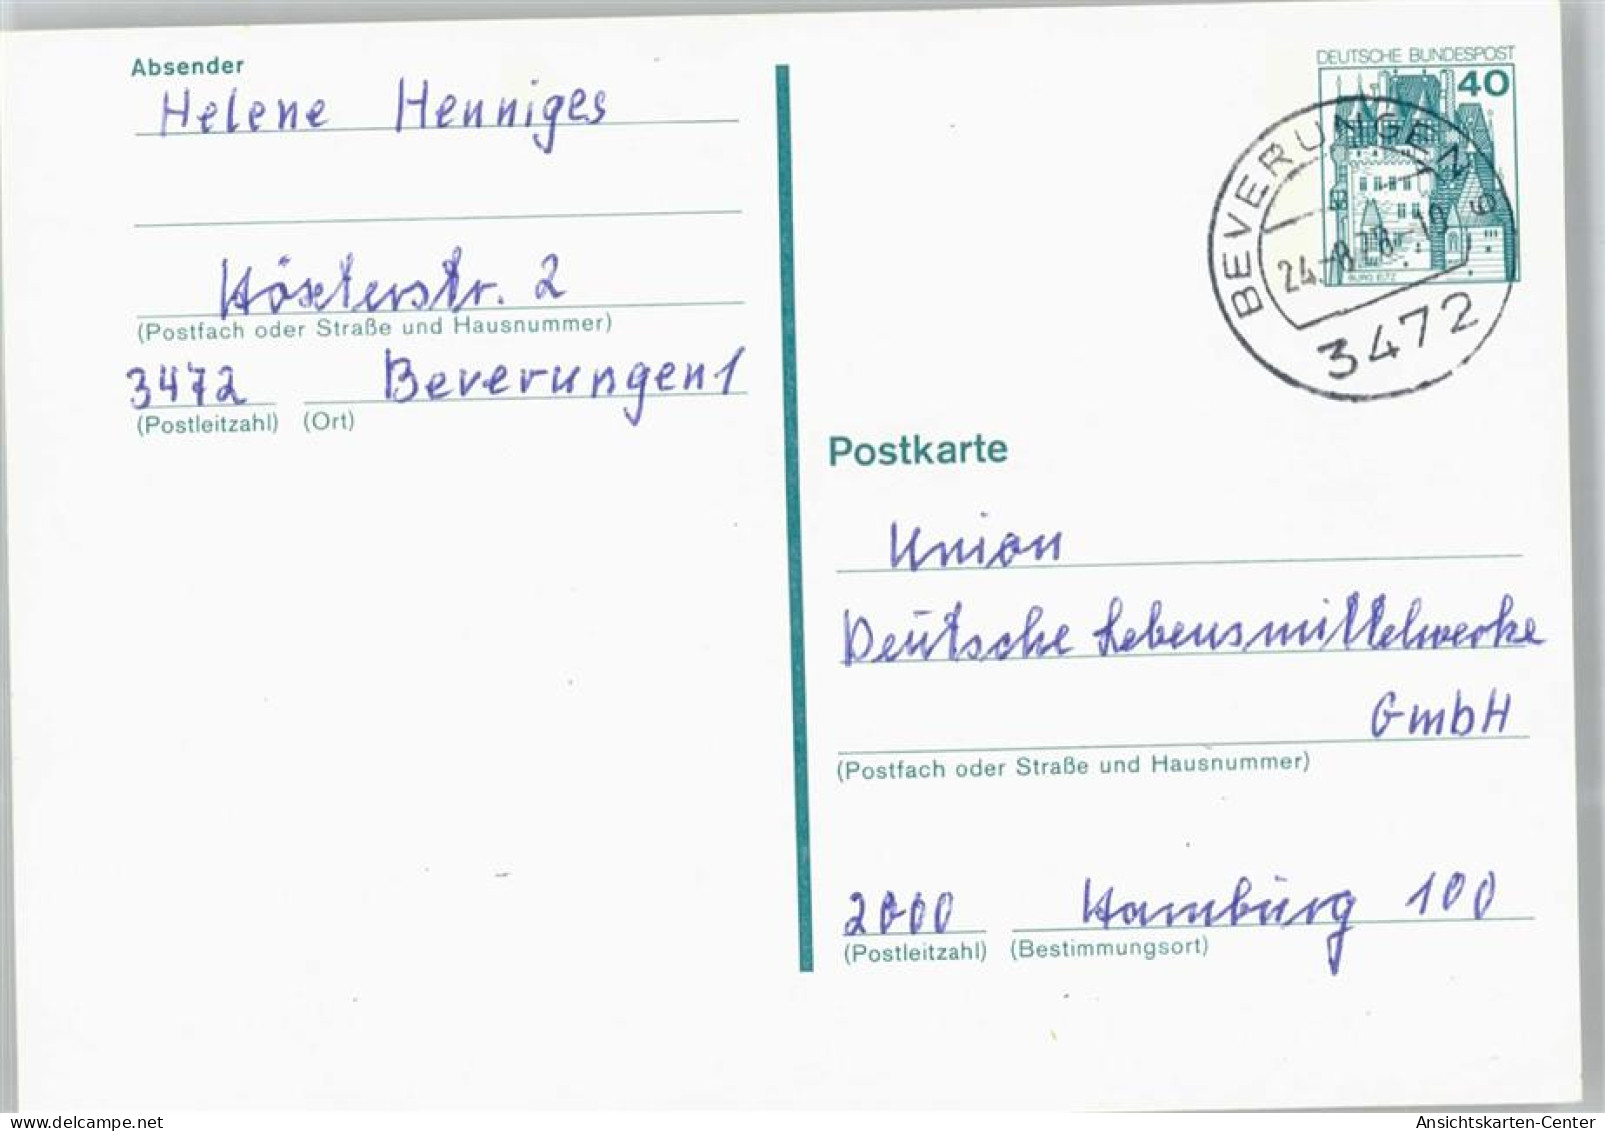 Absender
Helene Henniges
Höxterstr. 2
(Postfach oder Straße und Hausnummer)
3472 Beverungen 1
(Postleitzahl) (Ort)
DEUTSCHE BUNDESPOST
40
BURG ELTZ
BEVERUNGEN
24.-8.78-19
3472
Postkarte
Union
Deutsche Lebensmittelwerke
GmbH
(Postfach oder Straße und Hausnummer)
2000 Hamburg 100
(Postleitzahl) (Bestimmungsort)
delcampe.net
Ansichtskarten-Center